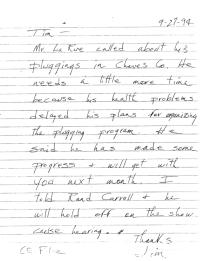 9-27-94
Tim -
Mr. La Rue called about his
pluggings in Chaves Co. He
needs a little more time
because his health problems
delayed his plans for organizing
the plugging program. He
said he has made some
progress + will get with
you next month. I
told Rand Carroll + he
will hold off on the show
cause hearing.
Thanks
Jim
CC File